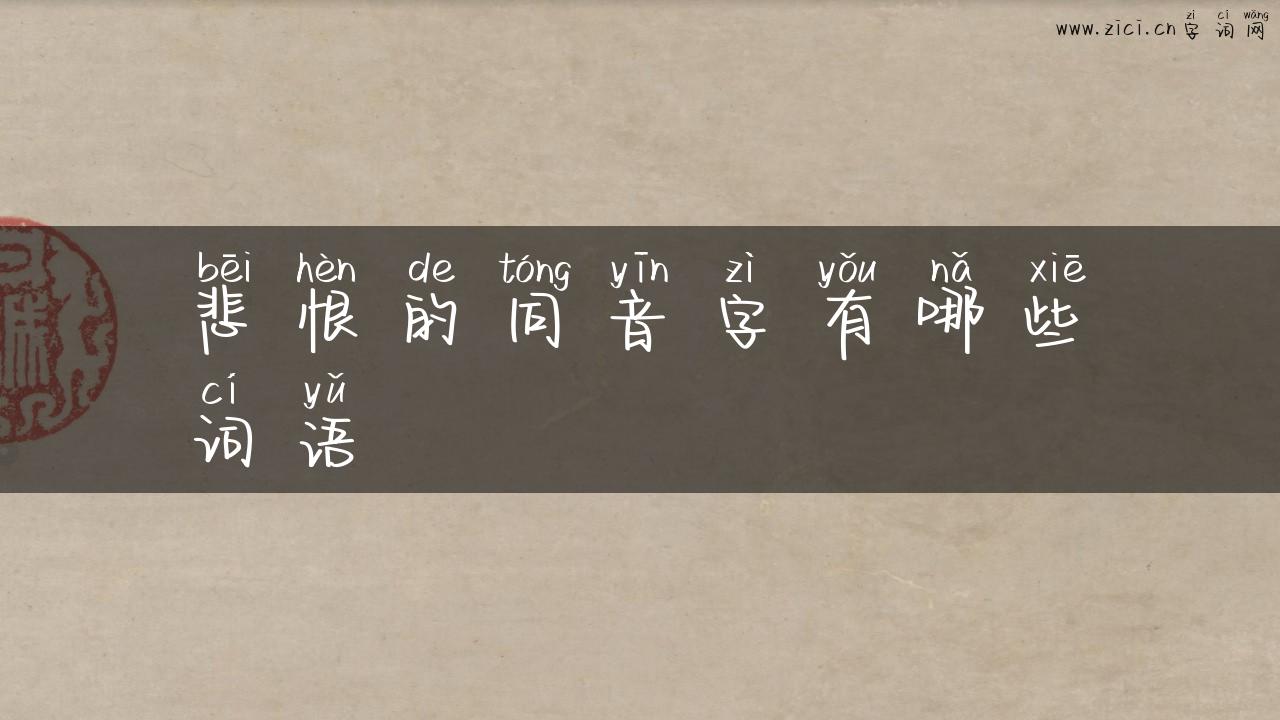 zì cí wǎng
www.zici.cn字词网
bēi hèn de tóng yīn zì yǒu nǎ xiē
悲恨的同音字有哪些
cí yǔ
词语